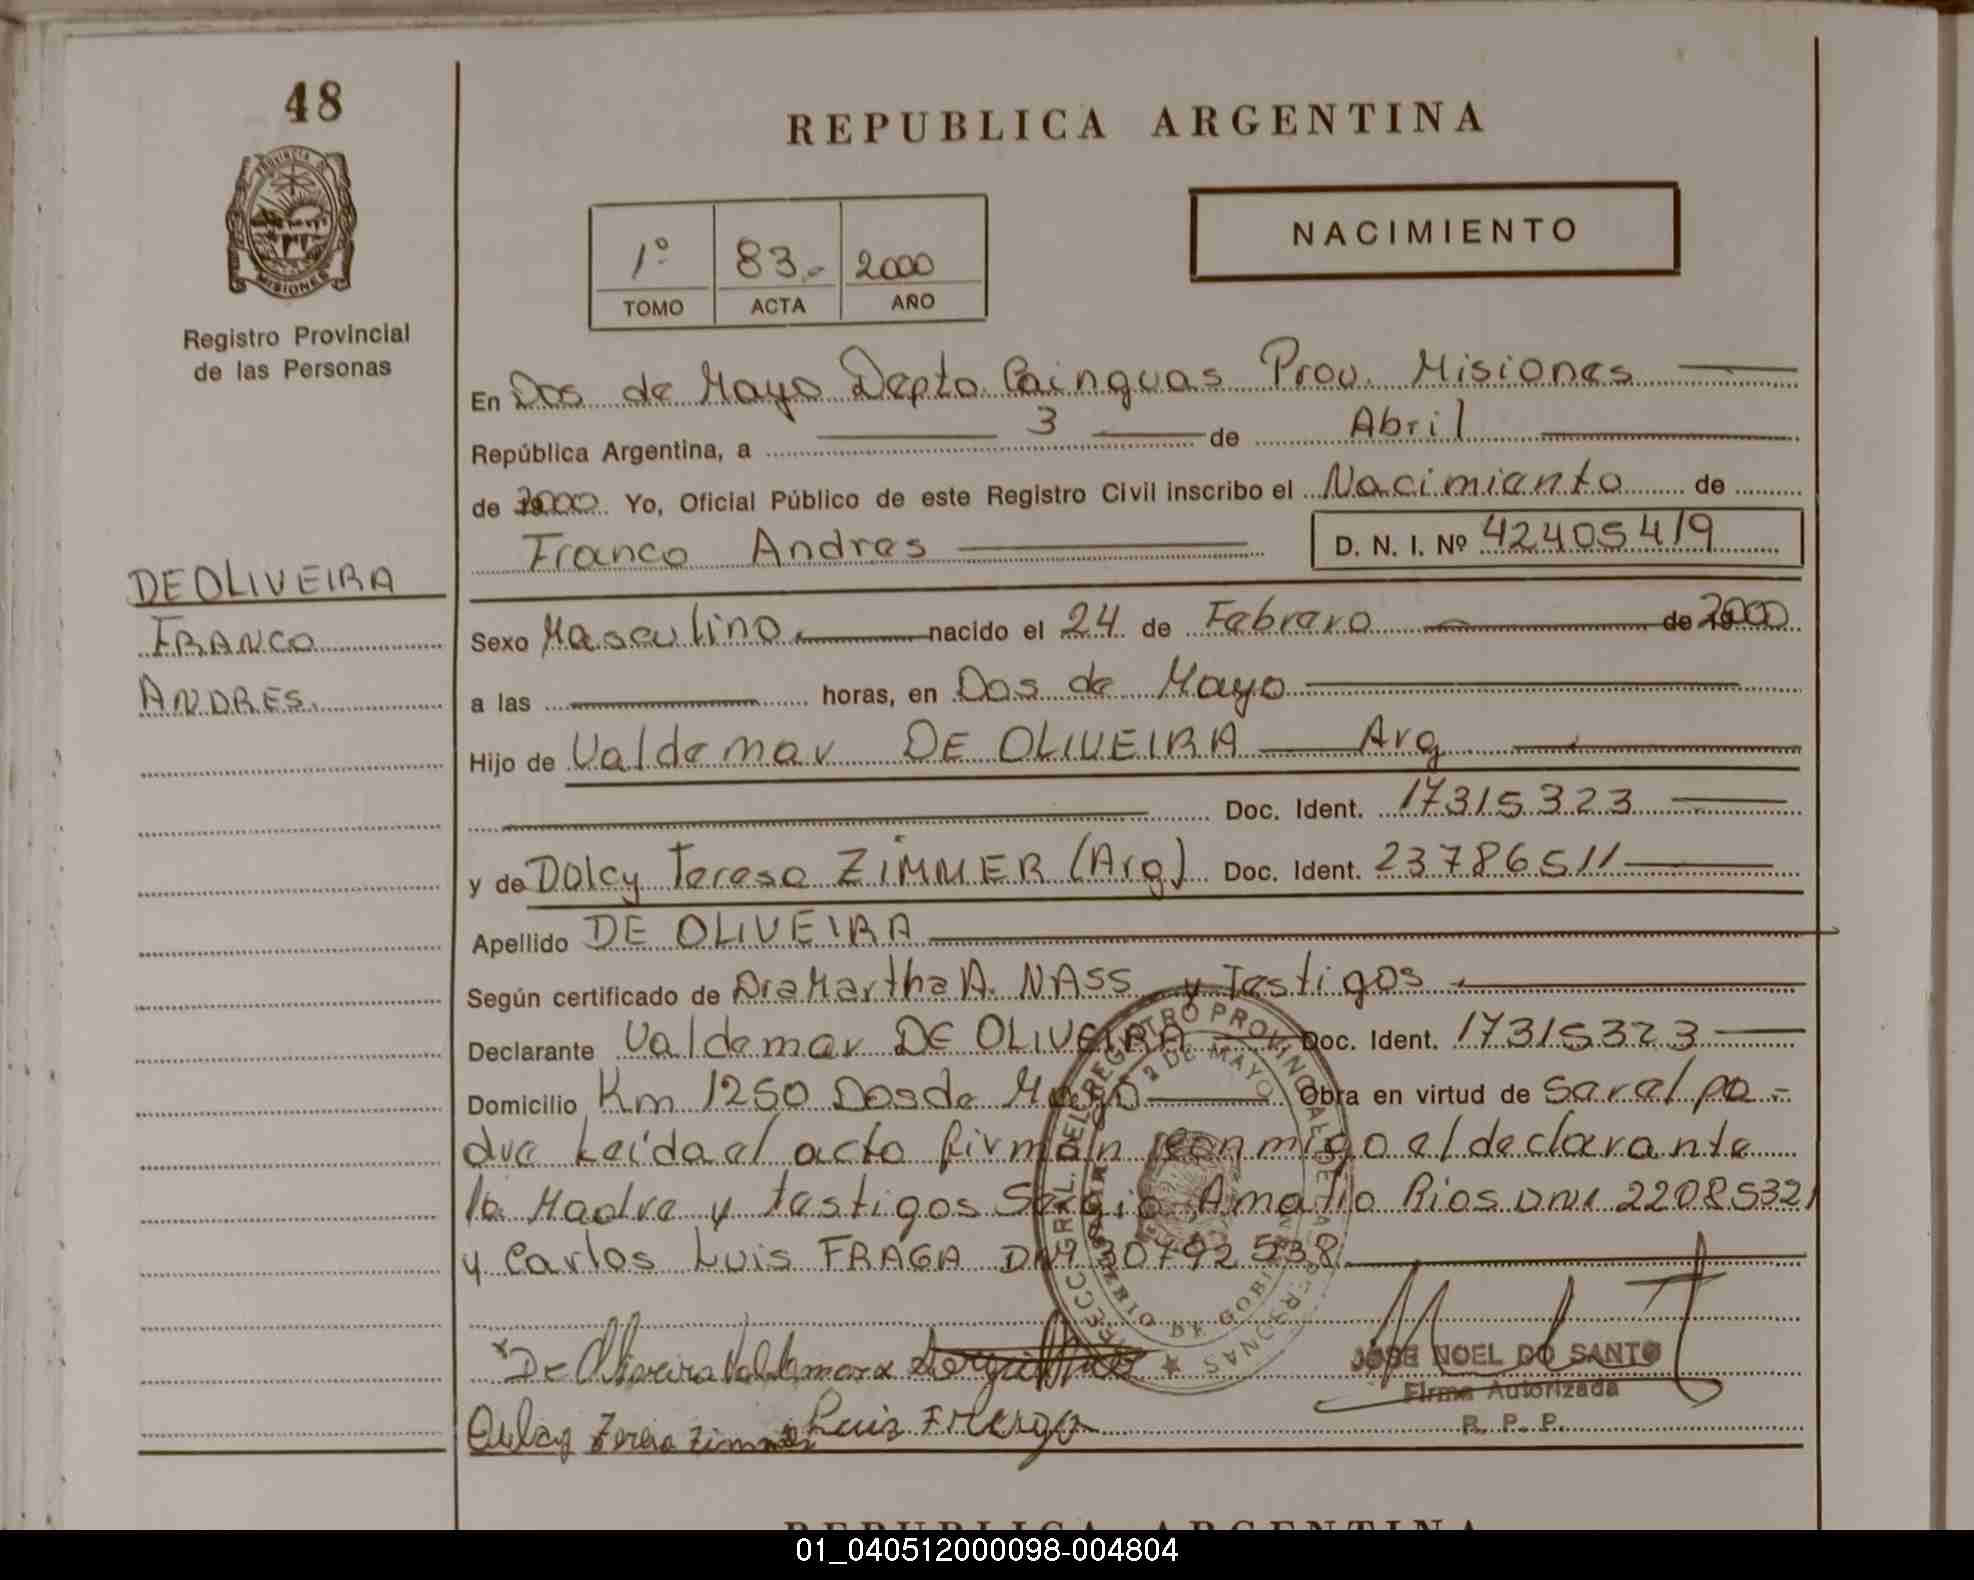 48
REPUBLICA ARGENTINA
PROVINCIA DE
MISIONES
Registro Provincial
de las Personas
1º 83.- 2000
TOMO ACTA AÑO
NACIMIENTO
En Dos de Mayo Depto. Cainguas Prov. Misiones
República Argentina, a 3 de Abril
de 2000 Yo, Oficial Público de este Registro Civil inscribo el Nacimiento de
Franco Andres D. N. I. Nº 42405419
DE OLIVEIRA
FRANCO
ANDRES.
Sexo Masculino nacido el 24 de Febrero de 2000
a las horas, en Dos de Mayo
Hijo de Valdemar DE OLIVEIRA Arg
Doc. Ident. 17315323
y de Dolcy Teresa ZIMMER (Arg) Doc. Ident. 23786511
Apellido DE OLIVEIRA
Según certificado de Dra Martha A. NASS y Testigos
Declarante Valdemar DE OLIVEIRA Doc. Ident. 17315323
Domicilio Km 1250 Dos de Mayo Obra en virtud de Ser el pa-
dre Leída el acta firman conmigo el declarante
la Madre y testigos Sergio Rios DNI 22085321
y Carlos Luis FRAGA DNI 30792538
De Oliveira Valdemar
Teresa Zimmer Luis Fraga
JOSE NOEL DO SANTO
Firma Autorizada
R. P. P.
REPUBLICA ARGENTINA
01_040512000098-004804